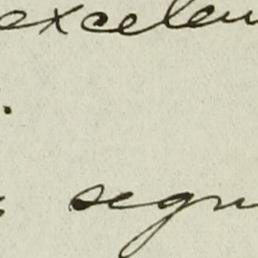 excelen
.
segu